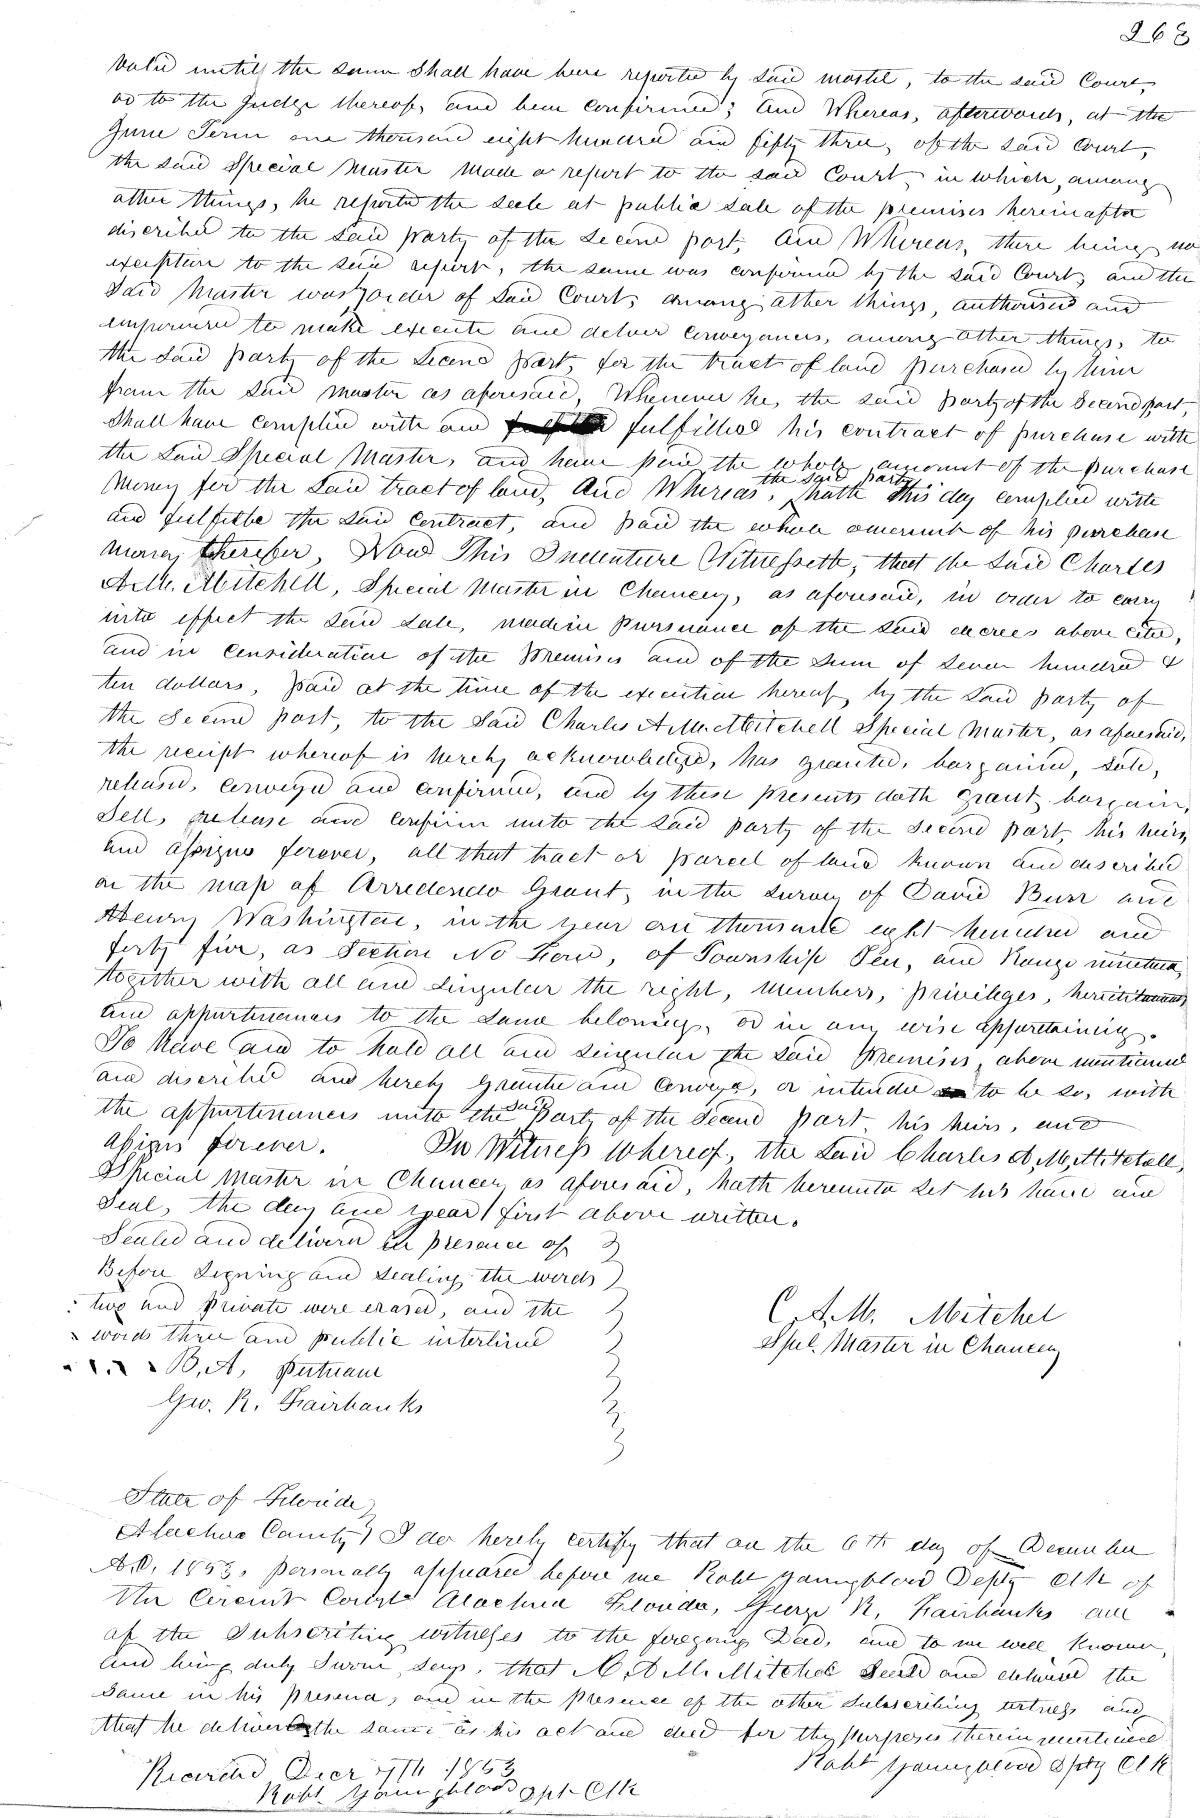 263
valid until the same shall have been reported by said master, to the said Court,
or to the Judge thereof, and been confirmed; and Whereas, afterwards, at the
June Term one thousand eight hundred and fifty three, of the said court,
the said Special Master made a report to the said Court, in which, among
other things, he reported the sale at public sale of the premises hereinafter
discribed to the said party of the second part, and Whereas, there being no
exception to the said report, the same was confirmed by the said Court, and the
said Master was order of said Court, among other things, authorised and
empowered to make execute and deliver conveyances, among other things, to
the said party of the second part, for the tract of land purchased by him
from the said master as aforesaid, Whenever he, the said party of the second part,
shall have complied with and fulfilled his contract of purchase with
the said Special Master, and have paid the whole amount of the purchase
money for the said tract of land, And Whereas, the said party hath this day complied with
and fulfilled the said contract, and paid the whole amount of his purchase
money therefor, Now This Indenture Witnesseth, that the said Charles
A. M. Mitchell, Special Master in Chancery, as aforesaid, in order to carry
into effect the said sale, made in pursuance of the said decrees above cited,
and in consideration of the premises and of the sum of seven hundred &
ten dollars, paid at the time of the execution hereof, by the said party of
the second part, to the said Charles A. M. Mitchell Special Master, as aforesaid,
the receipt whereof is hereby acknowledged, has granted, bargained, sold,
released, conveyed and confirmed, and by these presents doth grant, bargain,
sell, release and confirm unto the said party of the second part, his heirs
and assigns forever, all that tract or parcel of land known and described
on the map of Arredondo Grant, in the survey of David Burr and
Henry Washington, in the year one thousand eight hundred and
forty five, as Section No Four, of Township Ten, and Range nineteen,
together with all and singular the right, members, privileges, hereditaments
and appurtenances to the same belonging, or in any wise appertaining.
To have and to hold all and singular the said premises, above mentioned
and discribed and hereby granted and conveyed, or intended to be so, with
the appurtenances unto the said party of the second part, his heirs, and
assigns forever. In Witness whereof, the said Charles A. M. Mitchell,
Special Master in Chancery as aforesaid, hath hereunto set his hand and
seal, the day and year first above written.
Sealed and delivered in presence of
Before signing and sealing the words
two and private were erased, and the
words three and public interlined
B. A. Putnam
Geo. R. Fairbanks
C. A. M. Mitchel
Spul. Master in Chancery
State of Florida
Alachua County I do hereby certify that on the 6th day of December
A.D. 1853, personally appeared before me Robt Youngblood Depty Clk of
the Circuit Court Alachua Florida, George R. Fairbanks one
of the subscribing witnesses to the foregoing Deed, and to me well known,
and being duly sworn, says, that C. A. M. Mitchel Seald and delivered the
same in his presence, and in the presence of the other subscribing witness and
that he delivered the same as his act and deed for the purposes therein mentioned
Robt Youngblood Dpty Clk
Recorded Decr 7th 1853
Robt Youngblood Dpt Clk